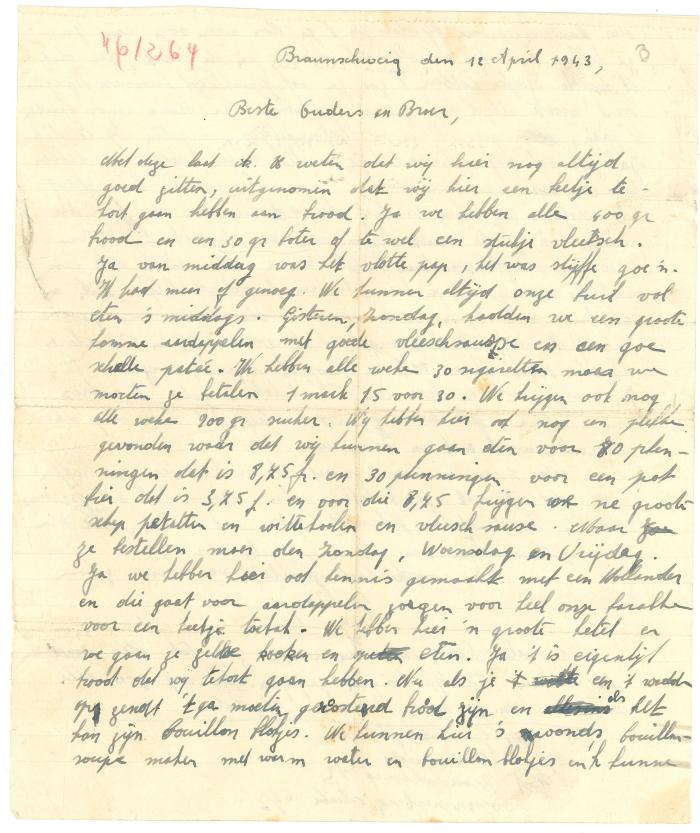 46/264
Braunschweig den 12 April 1943,
B
Beste Ouders en Broer,
Met deze laat ik U weten dat wij hier nog altijd
goed zitten, uitgenomen dat wij hier een beetje te-
kort gaan hebben aan brood. Ja we hebben alle 600 gr
brood en een 50 gr boter of te wel een stukje vleesch.
Ja van middag was het vlotte pap, het was stijffe goe'n.
'K had meer of genoeg. We kunnen altijd onze buik vol
eten 's middags. Gisteren, zondag, hadden we een groote
komme aardappelen met goede vleeschsause en een goe
schelle pateé. We hebben alle weke 30 sigaretten maar we
moeten ze betalen 1 mark 15 voor 30. We krijgen ook nog
alle weke 200 gr suiker. Wij hebben hier ook nog een plekke
gevonden waar dat wij kunnen gaan eten voor 70 phen-
ningen dat is 8,75 fr. en 30 phenningen voor een pot
bier dat is 3,75 f. en voor die 8,75 krijgen we ne groote
schep petatten en wittekoolen en vleeschsause. Maar
ze bestellen maar den Zondag, Woensdag en Vrijdag.
Ja we hebben hier ook kennis gemaakt met een Hollander
en die gaat voor aardappelen zorgen voor heel onze barakke
voor een beetje toebak. We hebben hier 'n groote ketel en
we gaan ze zelve kooken en eten. Ja 't is eigenlijk
brood dat wij tekort gaan hebben. Nu als je 't en 't
op zendt 't ga moeten geroosterd brood zijn en als het
kan zijn bouillon blokjes. We kunnen hier 's avonds bouillon-
soupe maken met warm water en bouillonblokjes en 'k kunne